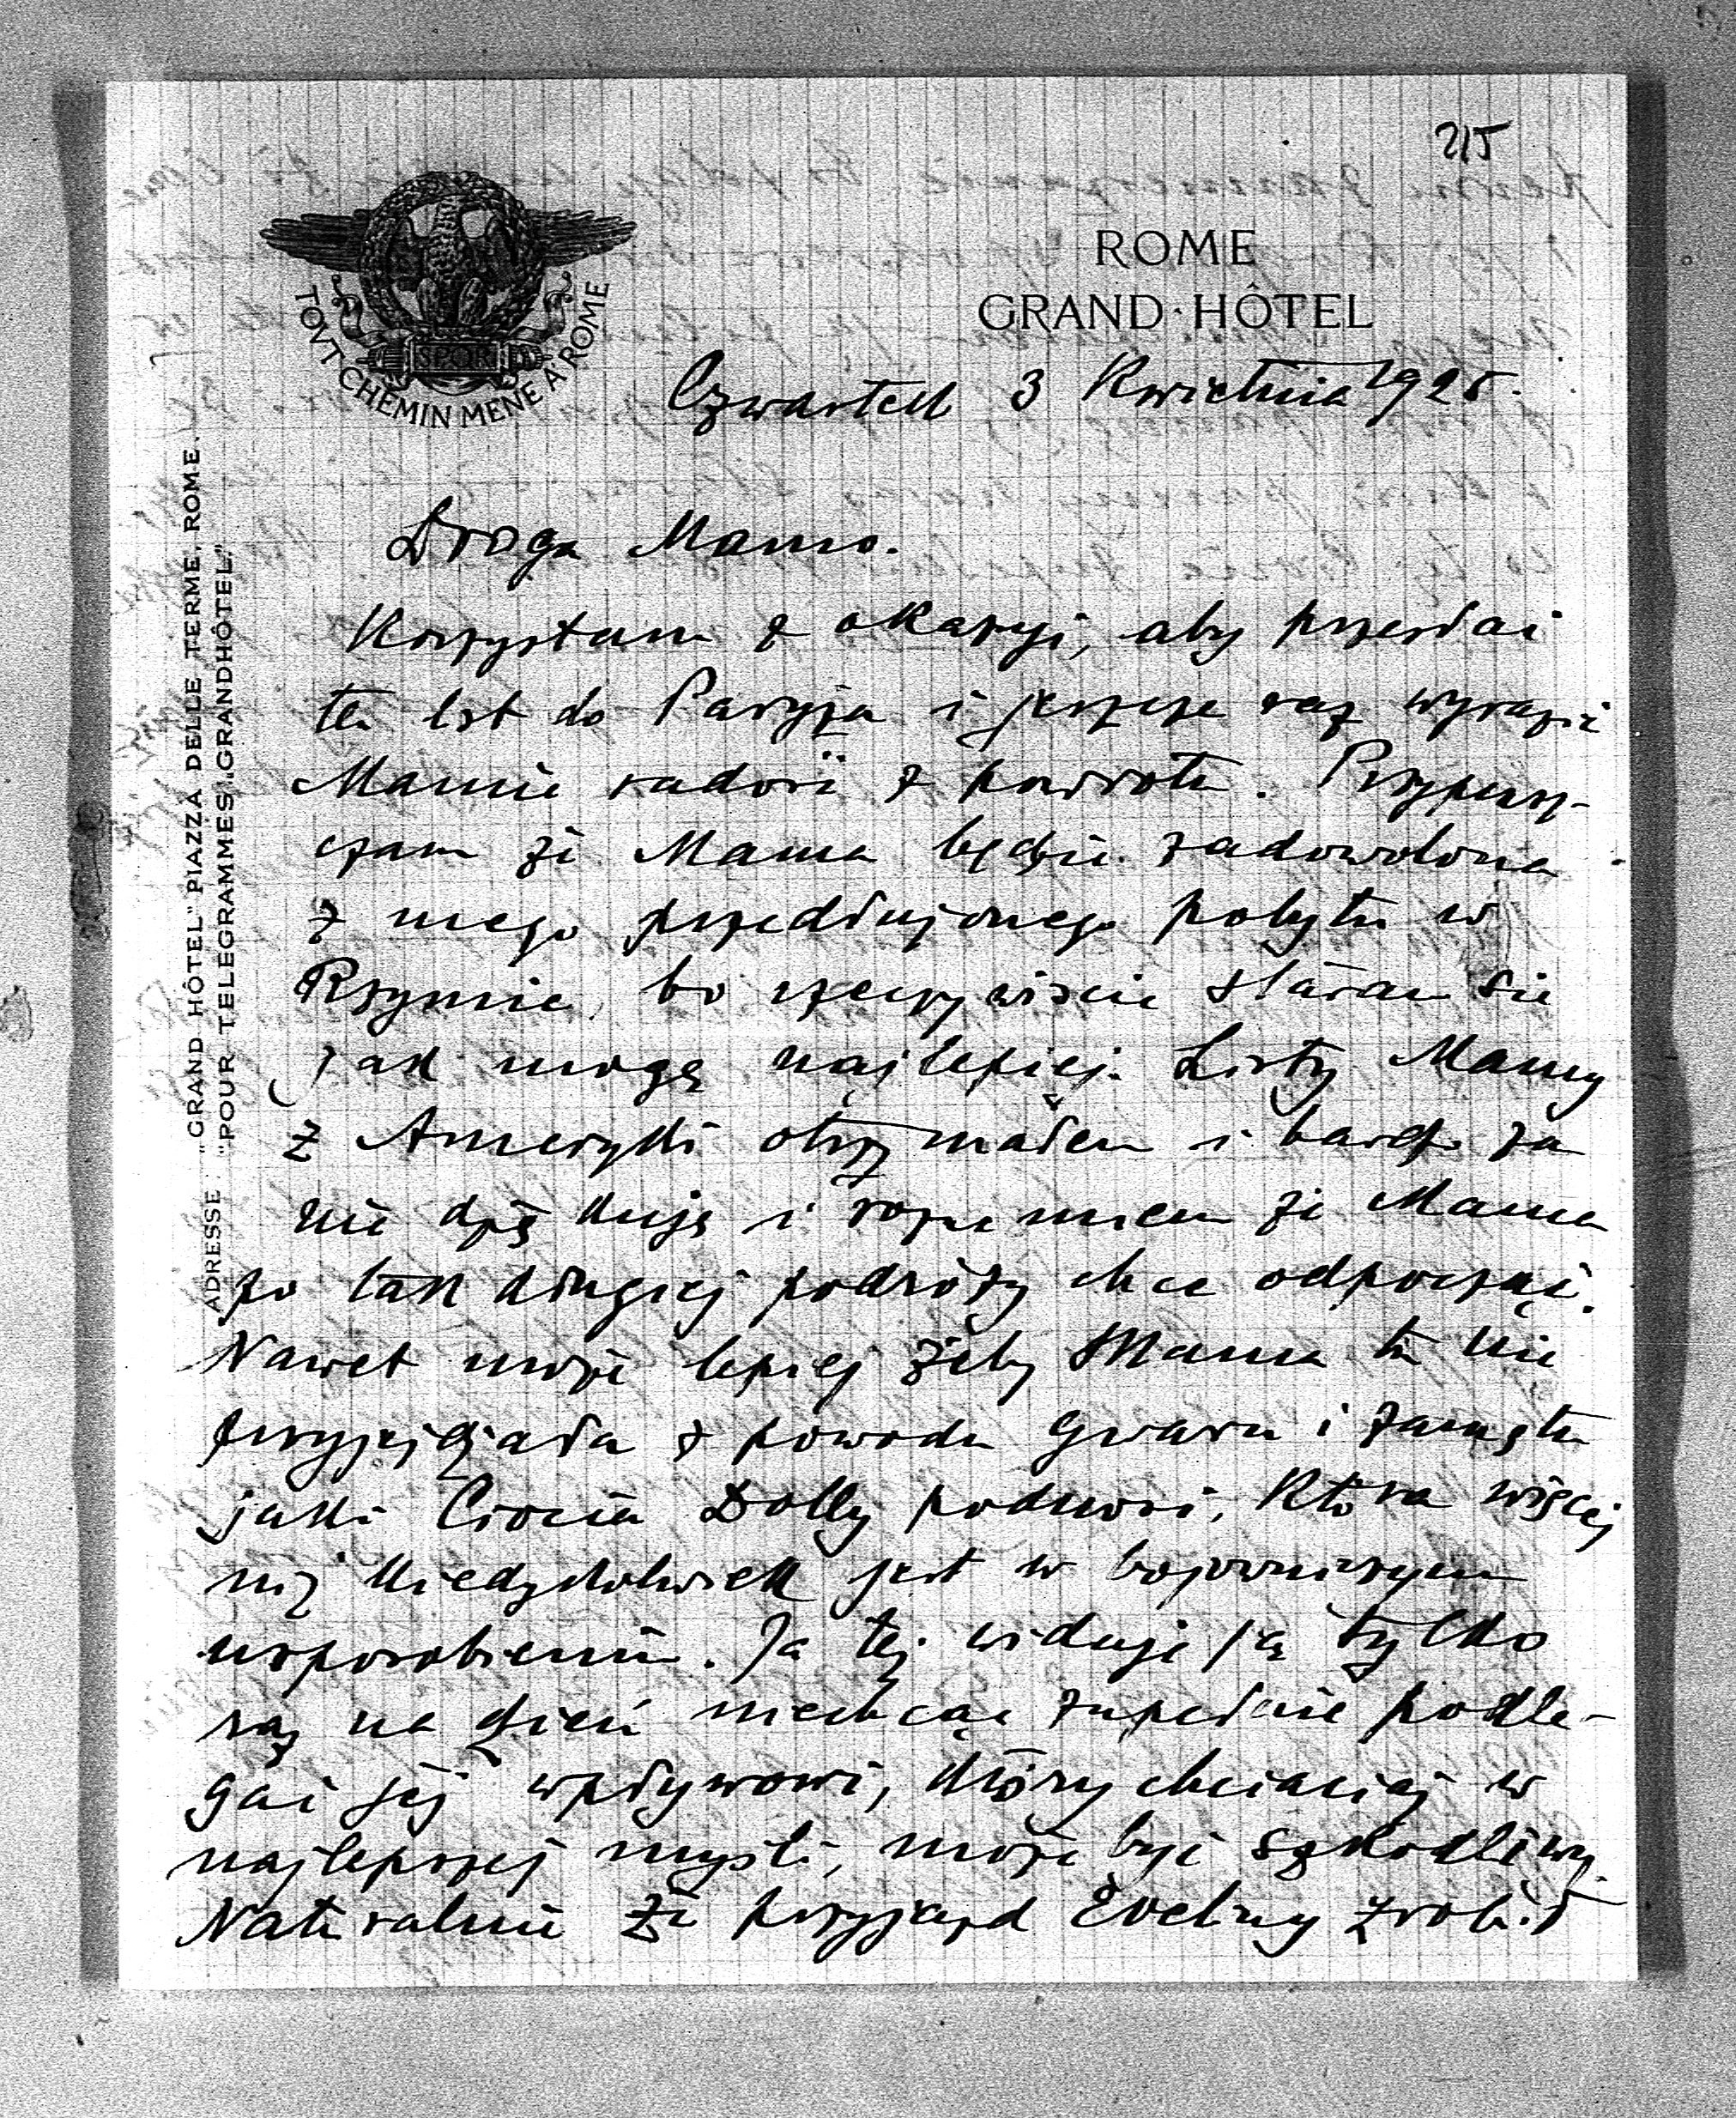 215
ROME
GRAND·HÔTEL
TOVT CHEMIN MENE A ROME
SPQR
ADRESSE: "GRAND HÔTEL" PIAZZA DELLE TERME, ROME.
"POUR TELEGRAMMES: GRANDHÔTEL"
Czwartek 3 Kwietnia 1925.
Droga Mamo.
Korzystam z okazyi, aby przesłać
ten list do Paryża i jeszcze raz wyrazić
Mamie radość z powrotu. Przypusz-
czam że Mama będzie zadowolona
z mego przedłużonego pobytu w
Rzymie, bo rzeczywiście staram się
jak mogę najlepiej. Listy Mamy
z Ameryki otrzymałem i bardzo za
nie dziękuję i rozumiem że Mama
po tak długiej podróży chce odpocząć.
Nawet może lepiej żeby Mama tu nie
przyjeżdżała z powodu gwaru i zamętu
jaki Ciocia Dolly podnosi, która więcej
niż kiedykolwiek jest w bojowniczym
usposobieniu. Ja też widuję ją tylko
raz na dzień niechcąc zupełnie podle-
gać jej wpływowi, który chociaż w
najlepszej myśli, może być szkodliwy.
Naturalnie że przyjazd Eveliny zrobił